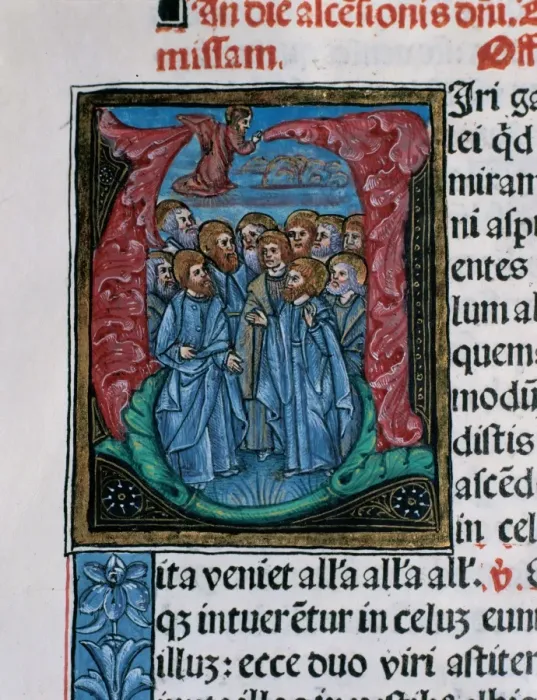 In die ascēsionis dn̄i. 
missam. Off
Uiri ga
lei q̄d
miram
ni aspi
entes
lum al
quem
modū
distis
ascēd
in cel
ita veniet all'a all'a all'. ℣.
qʒ intuerētur in celuʒ eun
illuʒ: ecce duo viri astiter